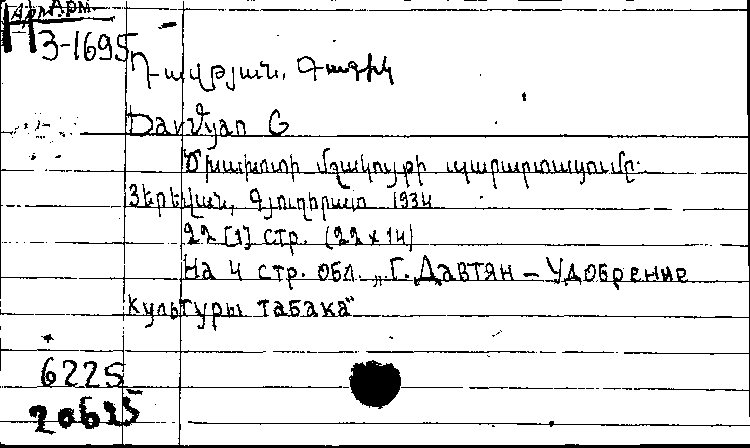 Арм Арм
3-1695
Դավթյան, Գագիկ
Davtyan G
Ծխախոտի մշակույթի պարարտացումը:
Յերեվան, Գյուղհրատ 1934
22 [1] стр. (22 x 14)
На 4 стр. обл. „Г. Давтян – Удобрение
культуры табака"
6225
20625